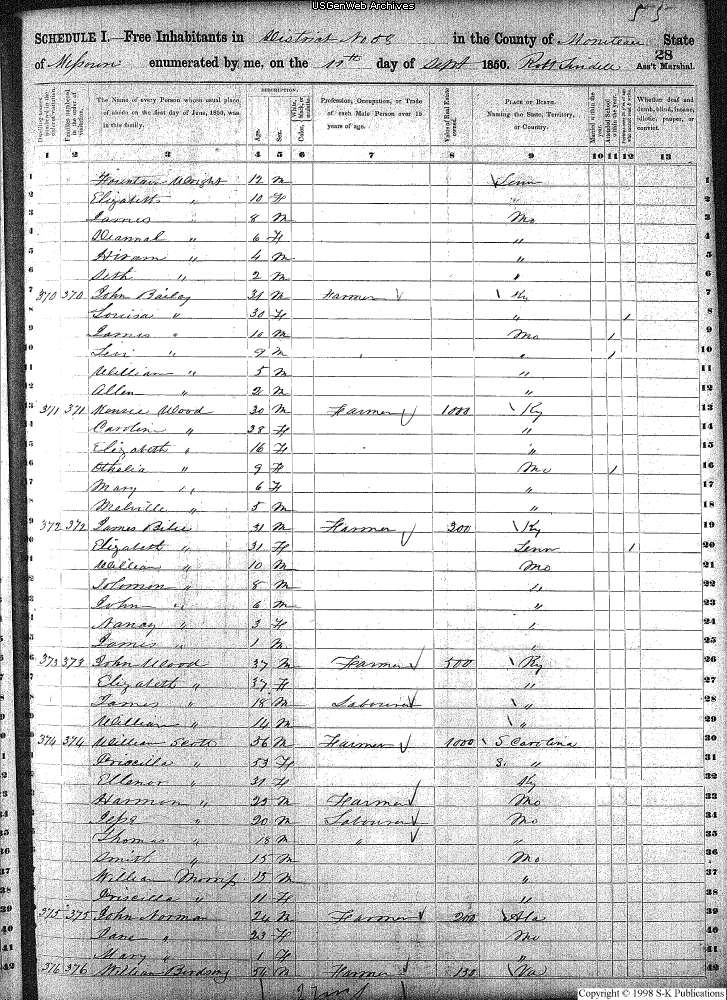 USGenWeb Archives
55
SCHEDULE I.—Free Inhabitants in District No 58 in the County of Moniteau State
of Missouri enumerated by me, on the 11th day of Sept 1850. Ass't Marshal.
28
DESCRIPTION.
Dwelling-houses numbered in the order of visitation.
Families numbered in the order of visitation.
The Name of every Person whose usual place of abode on the first day of June, 1850, was in this family.
Age.
Sex.
Color, White, black, or mulatto.
Profession, Occupation, or Trade of each Male Person over 15 years of age.
Value of Real Estate owned.
PLACE OF BIRTH. Naming the State, Territory, or Country.
Married within the year.
Attended School within the year.
Whether deaf and dumb, blind, insane, idiotic, pauper, or convict.
1 2 3 4 5 6 7 8 9 10 11 12 13
1 Fountain Wright 12 M Tenn 1
2 Elizabeth " 10 F " 2
3 James " 8 M Mo 3
4 " 6 F " 4
5 Hiram " 4 M " 5
6 Seth " 2 M " 6
7 370 370 John Bailey 31 M Farmer Ky 7
8 Louisa " 30 F " 1 8
9 James " 10 M Mo 1 9
10 Levi " 9 M " 1 10
11 William " 5 M " 11
12 Allen " 2 M " 12
13 371 371 Wood 30 M Farmer 1000 Ky 13
14 Caroline " 28 F " 14
15 Elizabeth " 16 F " 15
16 Othelia " 9 F Mo 1 16
17 Mary " 6 F " 17
18 Melville " 5 M " 18
19 372 372 James 31 M Farmer 300 Ky 19
20 Elizabeth " 31 F Tenn 1 20
21 William " 10 M Mo 21
22 Solomon " 8 M " 22
23 John " 6 M " 23
24 Nancy " 3 F " 24
25 James " 1 M " 25
26 373 373 John Wood 37 M Farmer 500 Ky 26
27 Elizabeth " 37 F " 27
28 James " 18 M Labourer " 28
29 William " 14 M " 29
30 374 374 William Scott 56 M Farmer 1000 S Carolina 30
31 Priscilla " 53 F S. " 31
32 Ellenor " 31 F Ky 32
33 Harmon " 23 M Farmer Mo 33
34 Jesse " 20 M Labourer Mo 34
35 Thomas " 18 M " " 35
36 Smith " 15 M Mo 36
37 William 15 M " 37
38 Priscilla " 11 F " 38
39 375 375 John Norman 24 M Farmer 200 Ala 39
40 Jane " 23 F Mo 40
41 Mary " 1 F " 41
42 376 376 William Birdsong 54 M Farmer 150 Va 42
Copyright © 1998 S-K Publications